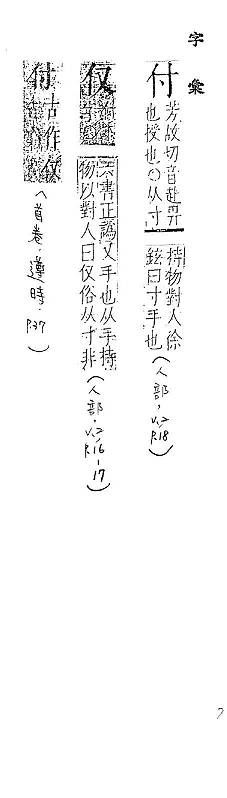 字彙
付 芳故切音赴畀也授也○从寸持物對人徐鉉曰寸手也(人部,V.2 P.18)
仅 六書正譌又手也从手持物以對人曰仅俗从寸非(人部,V.2 P.16-17)
付 古作仅(首卷.遵時.P.37)